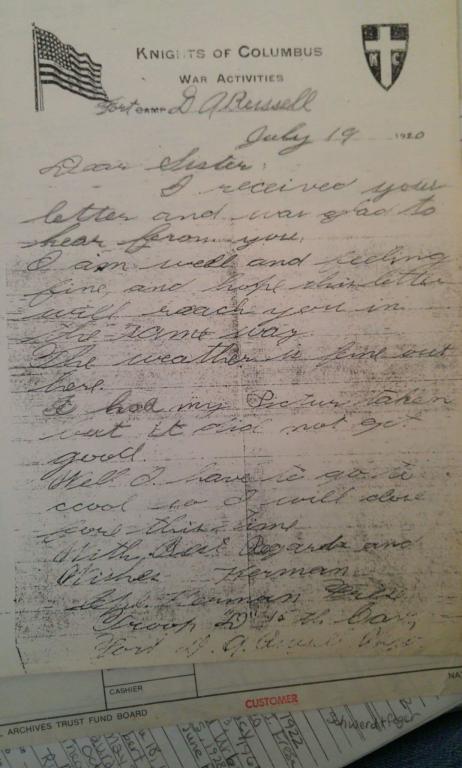 KNIGHTS OF COLUMBUS
WAR ACTIVITIES
K C
Fort CAMP D A Russell
July 19 1920
Dear Sister:
I received your
letter and was glad to
hear from you.
I am well and feeling
fine and hope this letter
will reach you in
the same way
The weather is fine out
here.
I had my Pictur taken
but it did not get
good.
Well I have to go to
so I will close
for this time
With Best Regards and
Wishes Herman
Herman
Troop D 15 th Cav
Fort D. A. Russell
CASHIER
ARCHIVES TRUST FUND BOARD
CUSTOMER
NA
1922